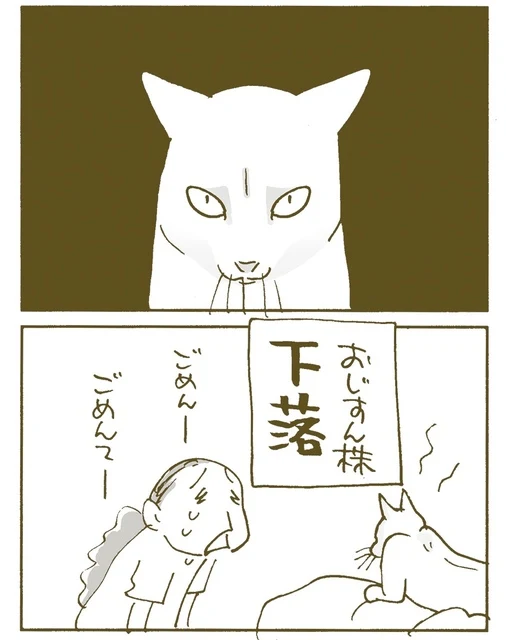 おじすん株
下落
ごめんー
ごめんてー